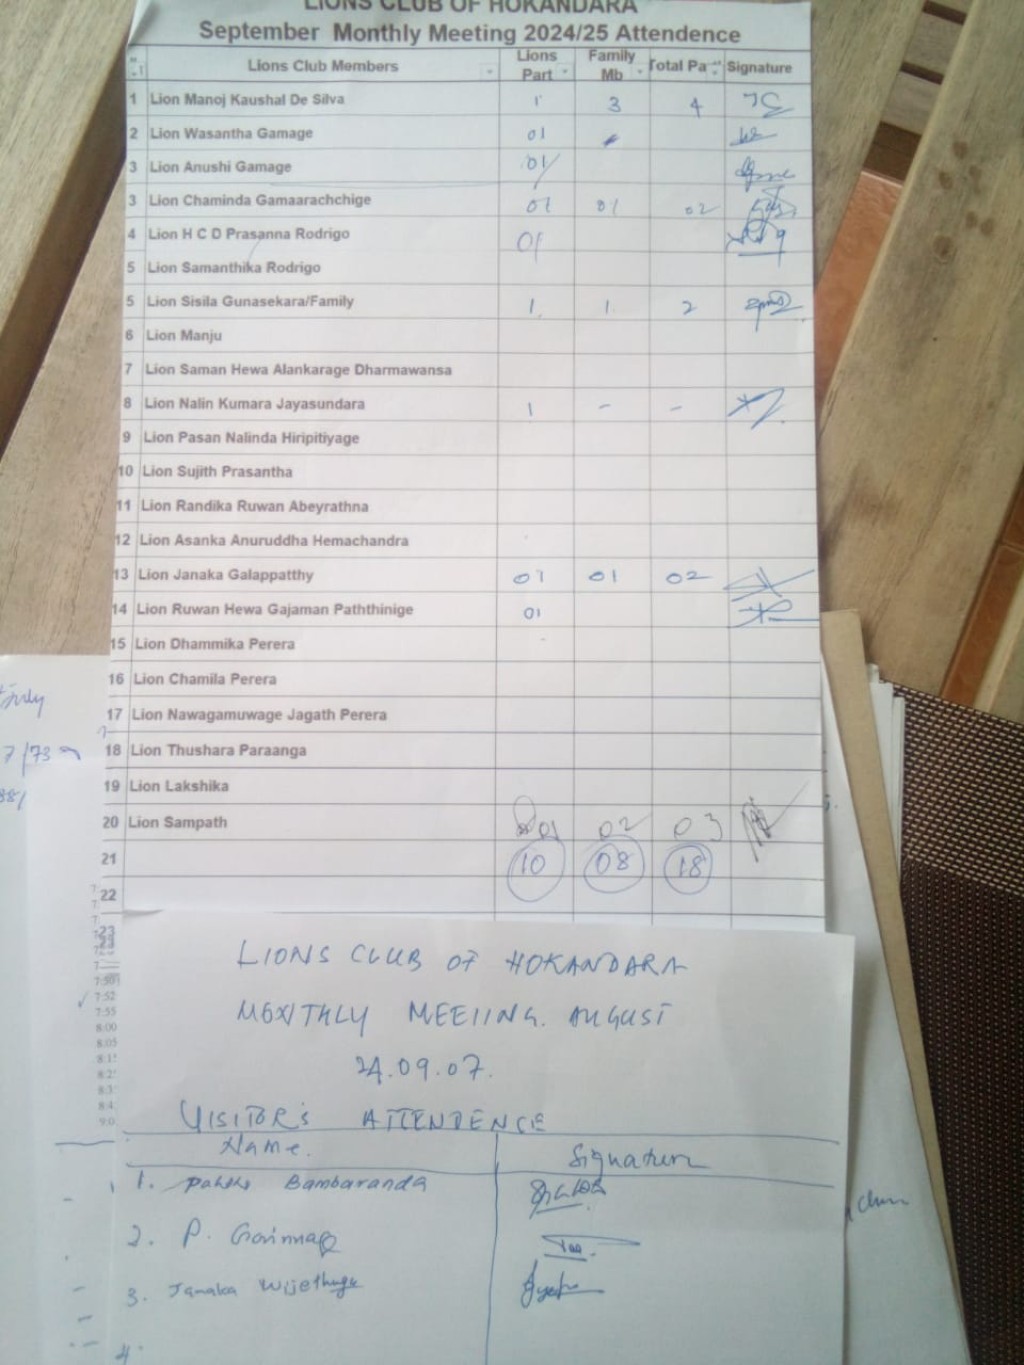 LIONS CLUB OF HOKANDARA
September Monthly Meeting 2024/25 Attendence
Lions Club Members Lions Part Family Mb Total Pa Signature
1 Lion Manoj Kaushal De Silva 1 3 4
2 Lion Wasantha Gamage 01
3 Lion Anushi Gamage 01
3 Lion Chaminda Gamaarachchige 01 01 02
4 Lion H C D Prasanna Rodrigo 01
5 Lion Samanthika Rodrigo
5 Lion Sisila Gunasekara/Family 1 1 2
6 Lion Manju
7 Lion Saman Hewa Alankarage Dharmawansa
8 Lion Nalin Kumara Jayasundara 1 - -
9 Lion Pasan Nalinda Hiripitiyage
10 Lion Sujith Prasantha
11 Lion Randika Ruwan Abeyrathna
12 Lion Asanka Anuruddha Hemachandra
13 Lion Janaka Galappatthy 01 01 02
14 Lion Ruwan Hewa Gajaman Paththinige 01
15 Lion Dhammika Perera
16 Lion Chamila Perera
17 Lion Nawagamuwage Jagath Perera
18 Lion Thushara Paraanga
19 Lion Lakshika
20 Lion Sampath 01 02 03
21 10 08 18
22
23
LIONS CLUB OF HOKANDARA
MONTHLY MEETING. AUGUST
24.09.07.
VISITOR'S ATTENDENCE
Name. Signature
1. Bambaranda
2. P.
3. Janaka Wijethunge
4
July
7/73
7:52
7:55
8:00
8:05